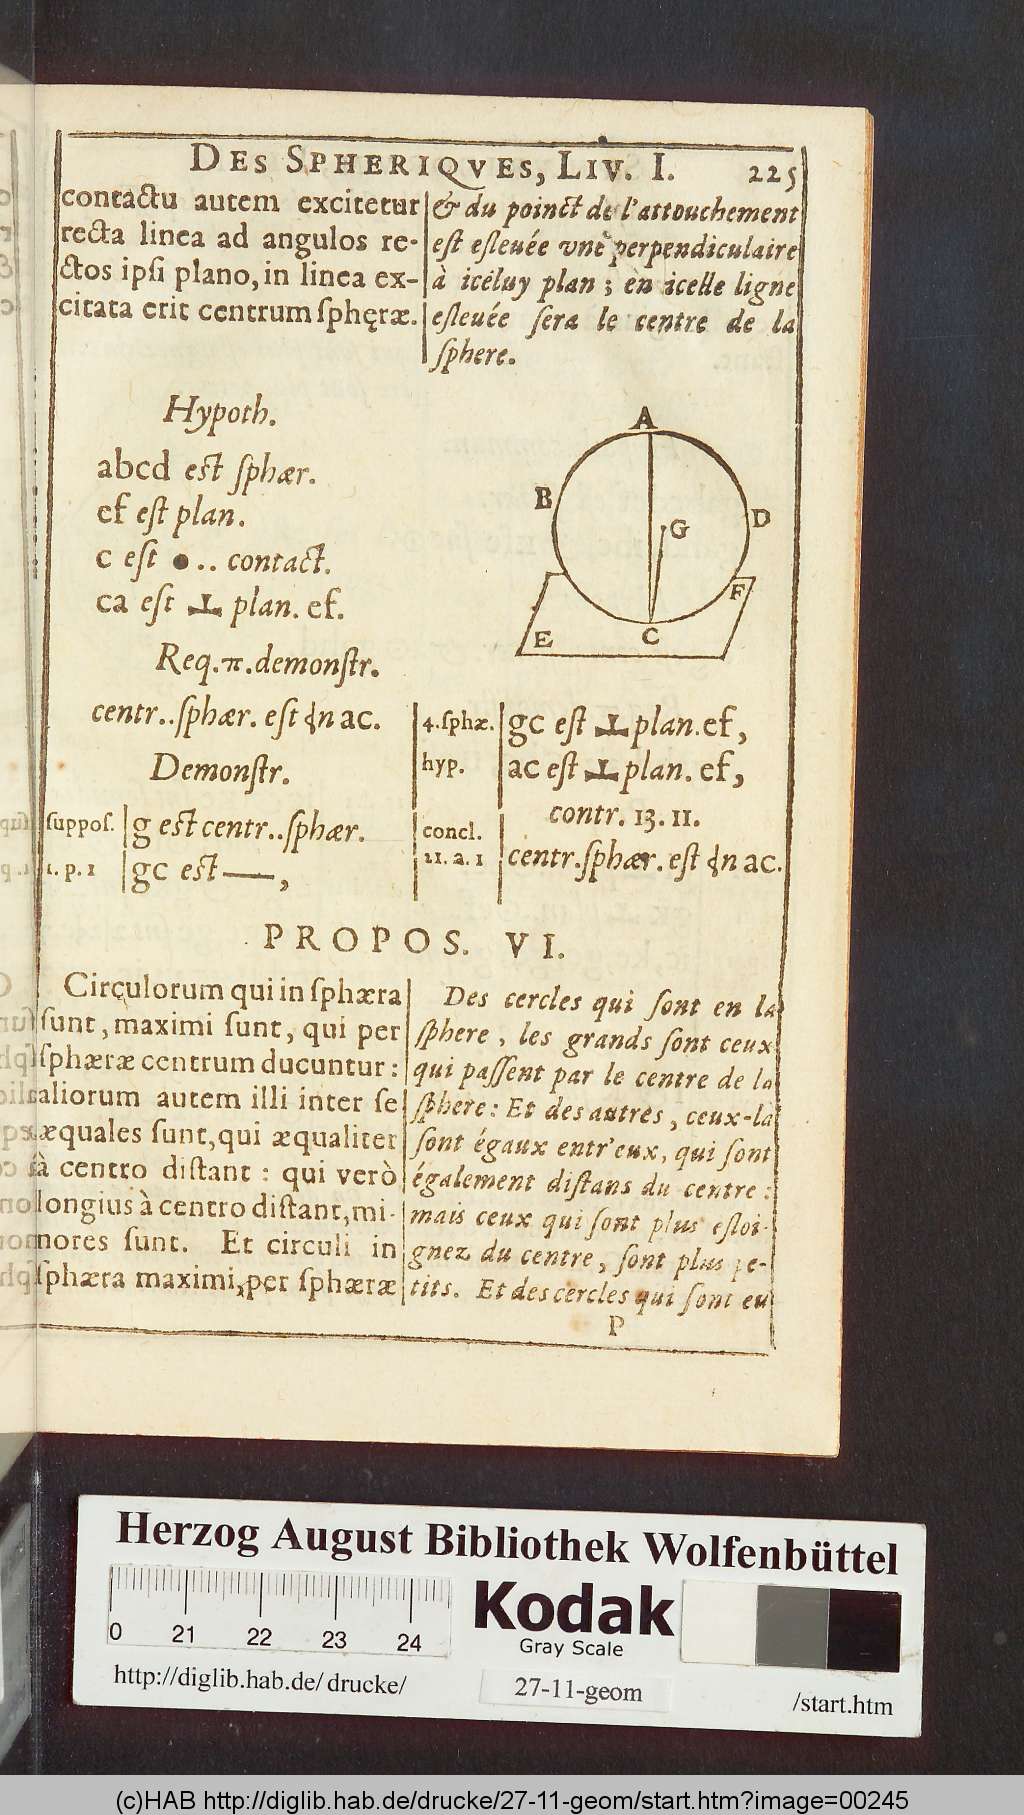 DES SPHERIQVES, LIV. I. 225
contactu autem excitetur
recta linea ad angulos re-
ctos ipſi plano, in linea ex-
citata erit centrum ſphęræ.
& du poinct de l'attouchement
eſt eſleuée vne perpendiculaire
à iceluy plan ; en icelle ligne
eſleuée ſera le centre de la
ſphere.
Hypoth.
abcd eſt ſphær.
ef eſt plan.
c eſt ●.. contact.
ca eſt ⊥ plan. ef.
Req. π. demonſtr.
centr..ſphær. eſt n ac.
Demonſtr.
ſuppoſ. g eſt centr..ſphær.
1. p. 1 gc eſt —,
A
B
D
G
F
E
C
4. ſphæ. gc eſt ⊥ plan. ef,
hyp. ac eſt ⊥ plan. ef,
contr. 13. 11.
concl.
21. a. 1 centr. ſphær. eſt n ac.
PROPOS. VI.
Circulorum qui in ſphæra
ſunt, maximi ſunt, qui per
ſphæræ centrum ducuntur:
aliorum autem illi inter ſe
æquales ſunt, qui æqualiter
à centro diſtant : qui verò
longius à centro diſtant, mi-
nores ſunt. Et circuli in
ſphæra maximi, per ſphæræ
Des cercles qui ſont en la
ſphere, les grands ſont ceux
qui paſſent par le centre de la
ſphere: Et des autres, ceux-la
ſont égaux entr'eux, qui ſont
également diſtans du centre :
mais ceux qui ſont plus eſloi-
gnez du centre, ſont plus pe-
tits. Et des cercles qui ſont en
P
Herzog August Bibliothek Wolfenbüttel
0 21 22 23 24
Kodak
Gray Scale
http://diglib.hab.de/drucke/
27-11-geom
/start.htm
(c)HAB http://diglib.hab.de/drucke/27-11-geom/start.htm?image=00245